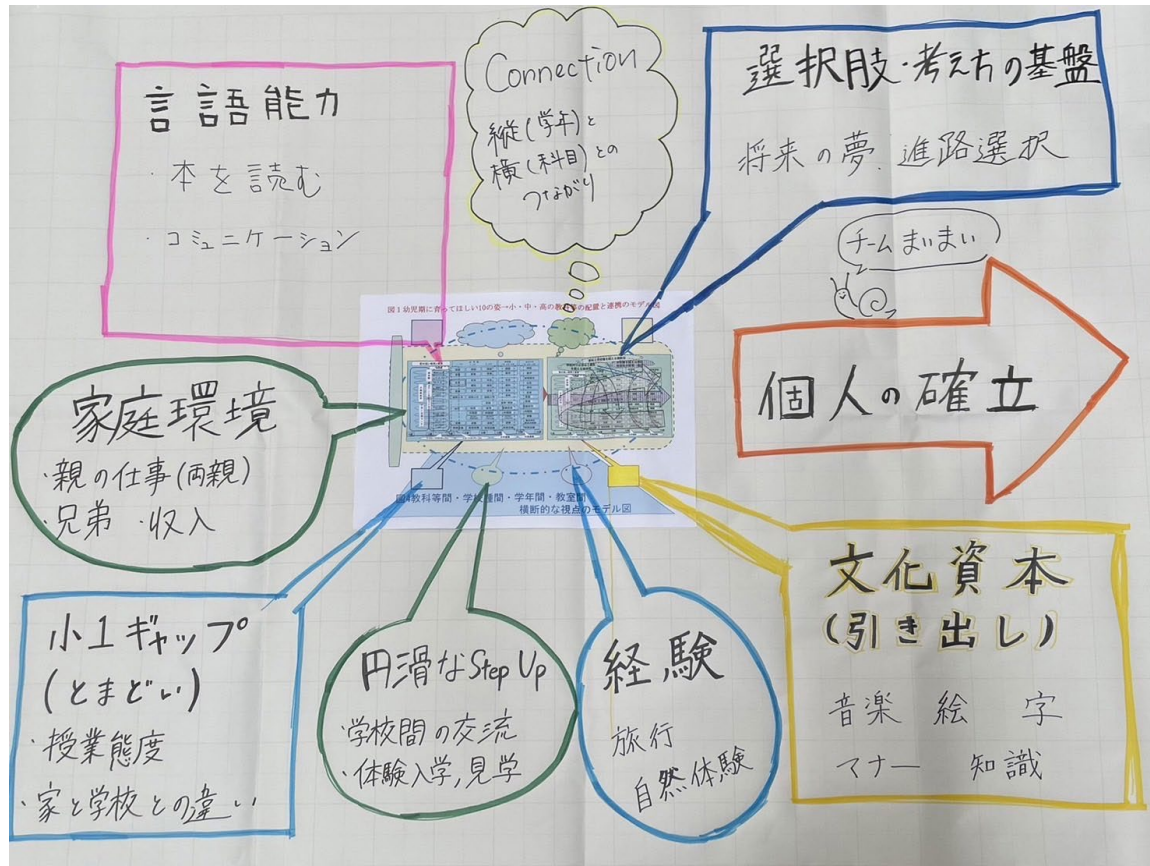 言語能力
・本を読む
・コミュニケーション
Connection
縦(学年)と
横(科目)との
つながり
選択肢・考え方の基盤
将来の夢.進路選択
チームまいまい
個人の確立
図1幼児期に育ってほしい10の姿→小・中・高の教科等の配置と連携のモデル図
図4教科等間・学校種間・学年間・教室間
横断的な視点のモデル図
家庭環境
・親の仕事(両親)
・兄弟 ・収入
小1ギャップ
(とまどい)
・授業態度
・家と学校との違い
円滑なStep Up
・学校間の交流
・体験入学,見学
経験
旅行
自然体験
文化資本
(引き出し)
音楽 絵 字
マナー 知識